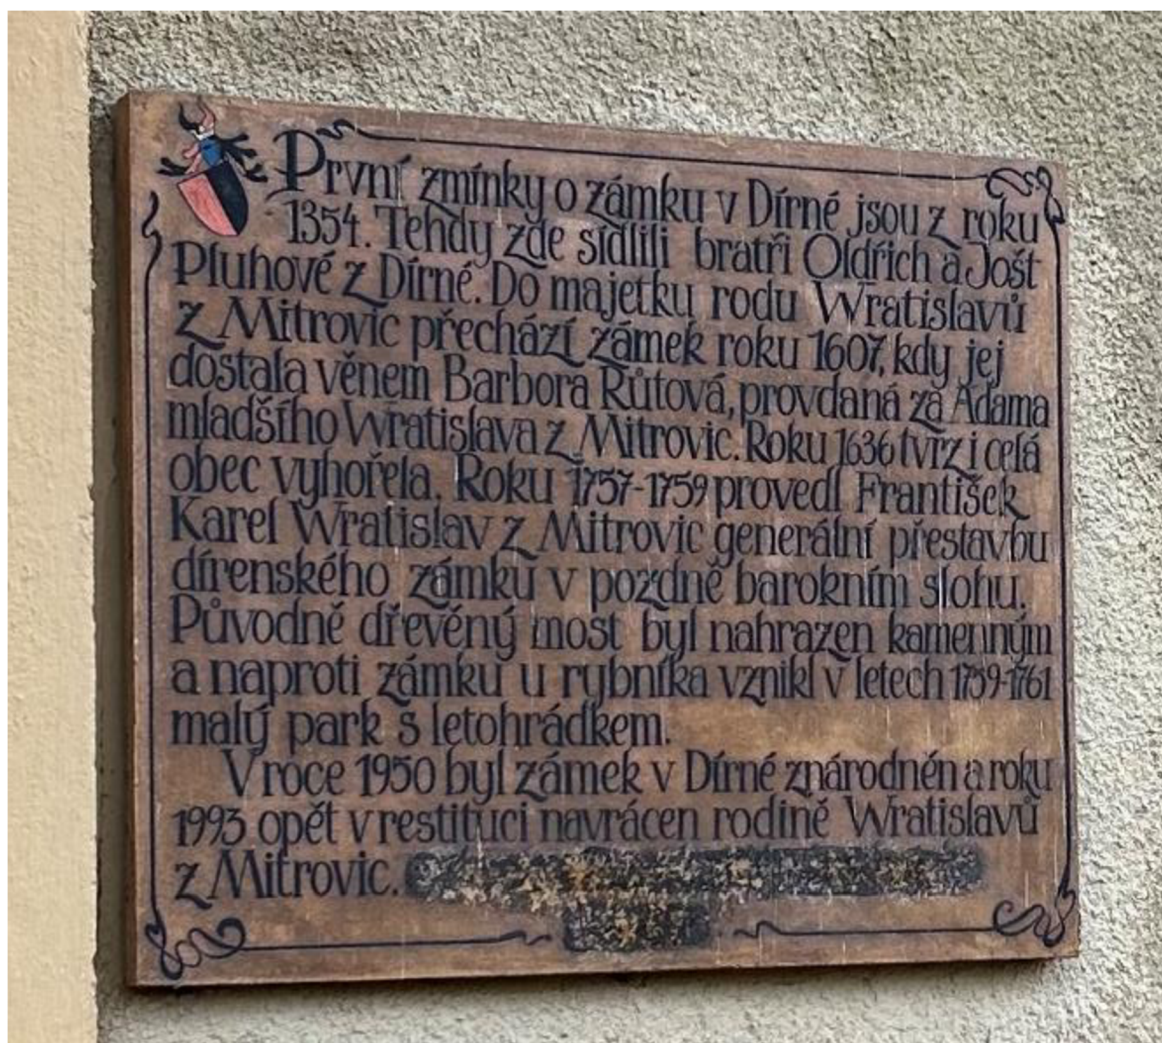 První zmínky o zámku v Dírné jsou z roku
1354. Tehdy zde sídlili bratři Oldřich a Jošt
Pluhové z Dírné. Do majetku rodu Wratislavů
z Mitrovic přechází zámek roku 1607, kdy jej
dostala věnem Barbora Růtová, provdaná za Adama
mladšího Wratislava z Mitrovic. Roku 1636 tvrz i celá
obec vyhořela. Roku 1757-1759 provedl František
Karel Wratislav z Mitrovic generální přestavbu
dírenského zámku v pozdně barokním slohu.
Původně dřevěný most byl nahrazen kamenným
a naproti zámku u rybníka vznikl v letech 1759-1761
malý park s letohrádkem.
V roce 1950 byl zámek v Dírné znárodněn a roku
1993 opět v restituci navrácen rodině Wratislavů
z Mitrovic.